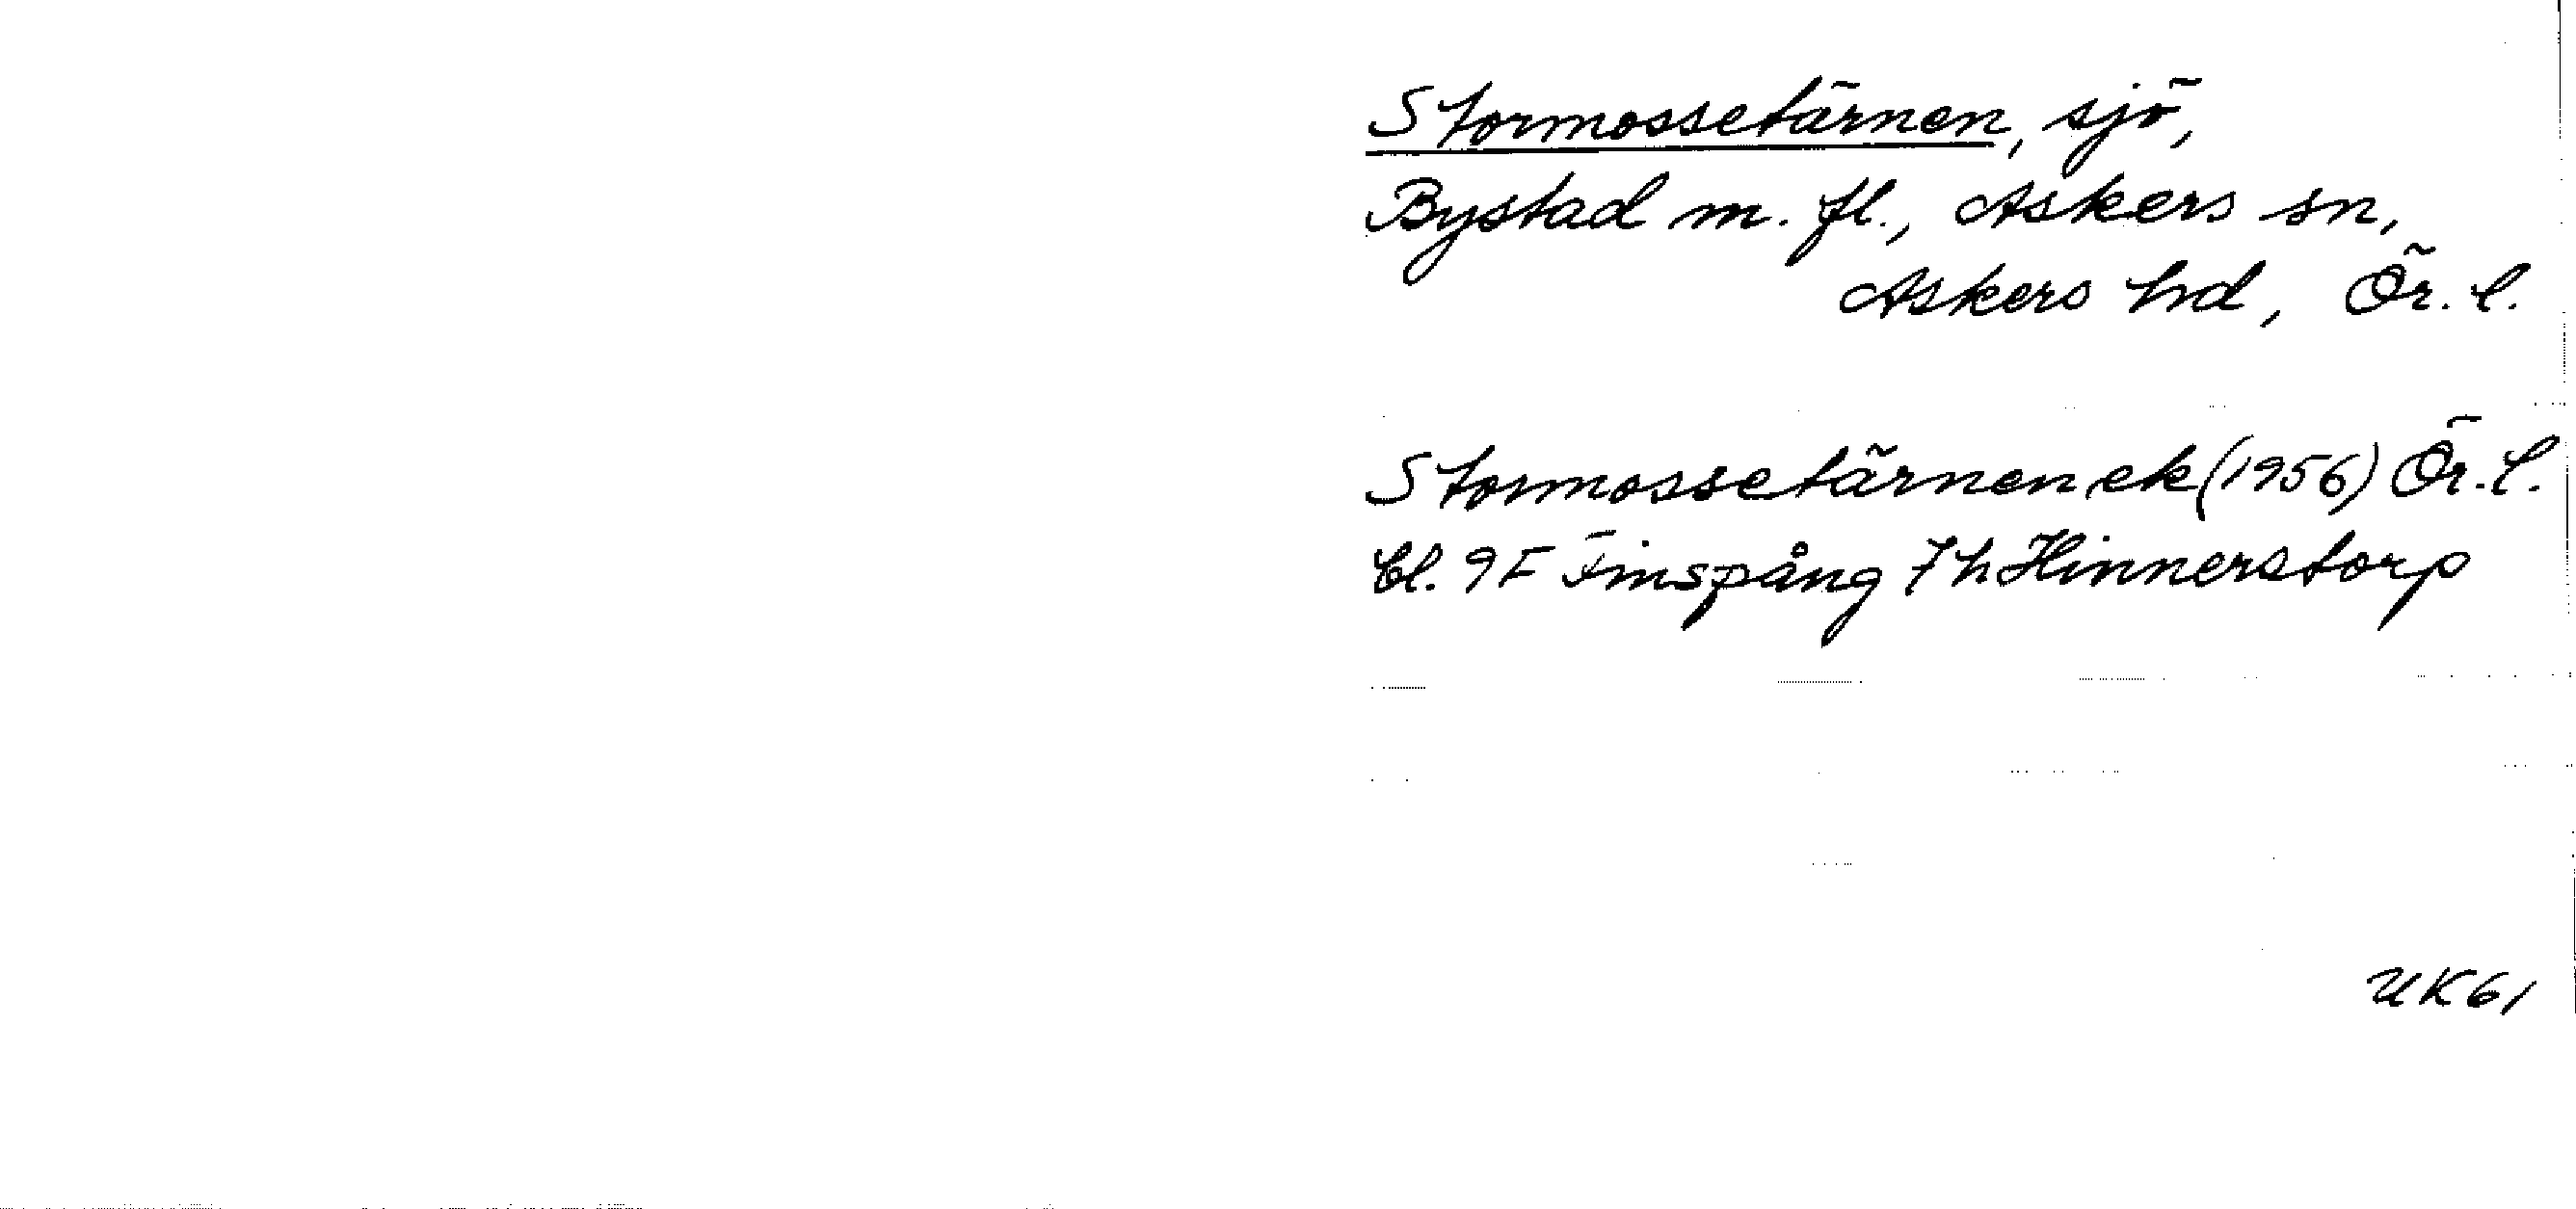 Stormossetärnen, sjö,
Bystad m. fl., Askers sn,
Askers hd, Ör. l.
Stormossetärnen ek (1956) Ör. l.
Bl. 9F Finspång 7h Hinnerstorp
UK61